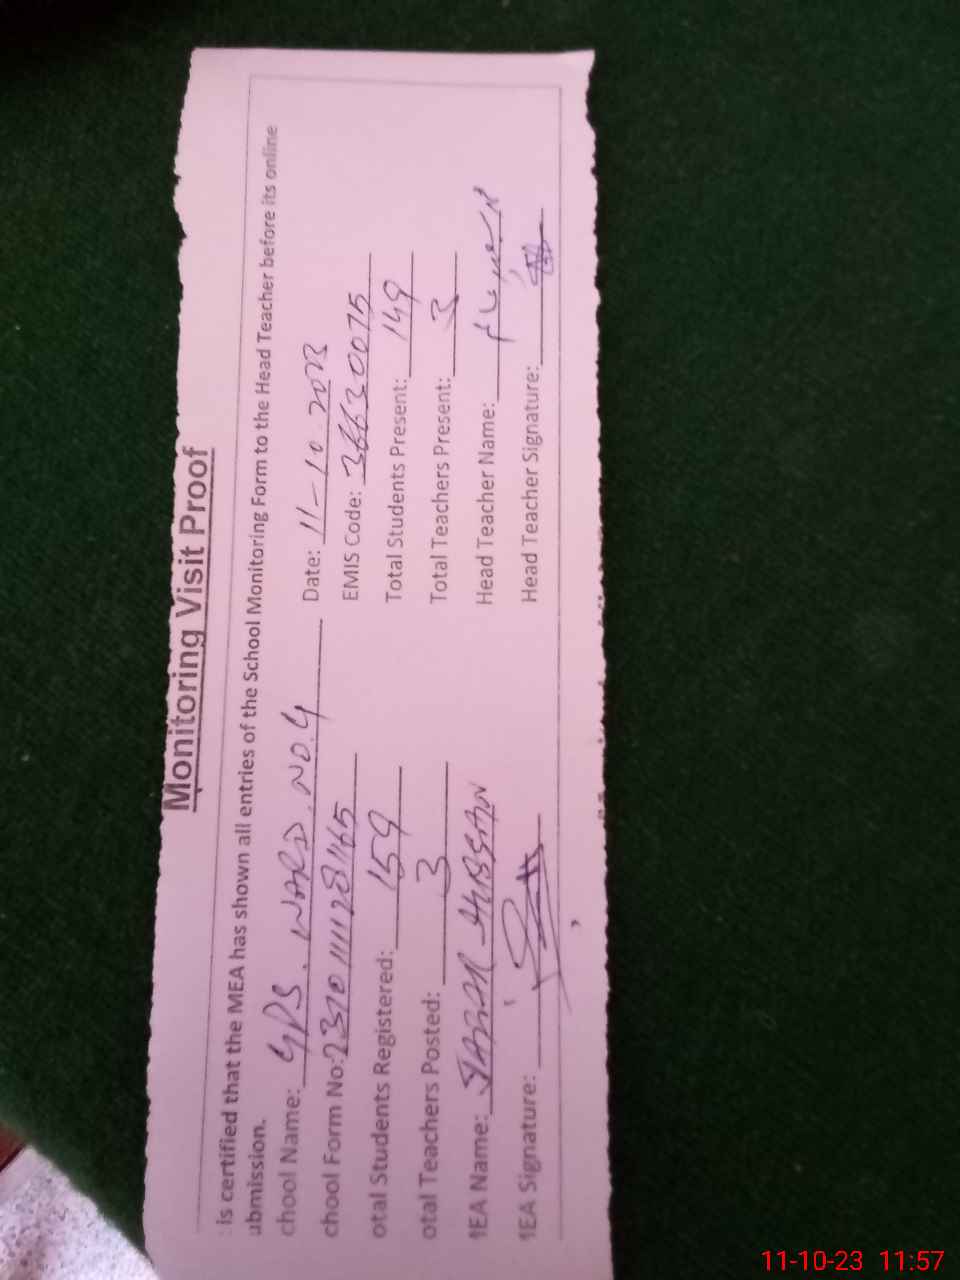 Monitoring Visit Proof
is certified that the MEA has shown all entries of the School Monitoring Form to the Head Teacher before its online
ubmission.
chool Name: GPS. WARD. NO. 4 Date: 11-10-2023
chool Form No: EMIS Code: 36630075
otal Students Registered: 159 Total Students Present: 149
otal Teachers Posted: 3 Total Teachers Present: 3
1EA Name: Head Teacher Name:
1EA Signature: Head Teacher Signature:
11-10-23 11:57